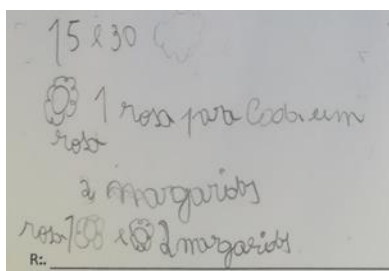 15 e 30
1 rosa para Cada um
rosa
2 margaridas
rosa 1 e 2 margaridas
R:.